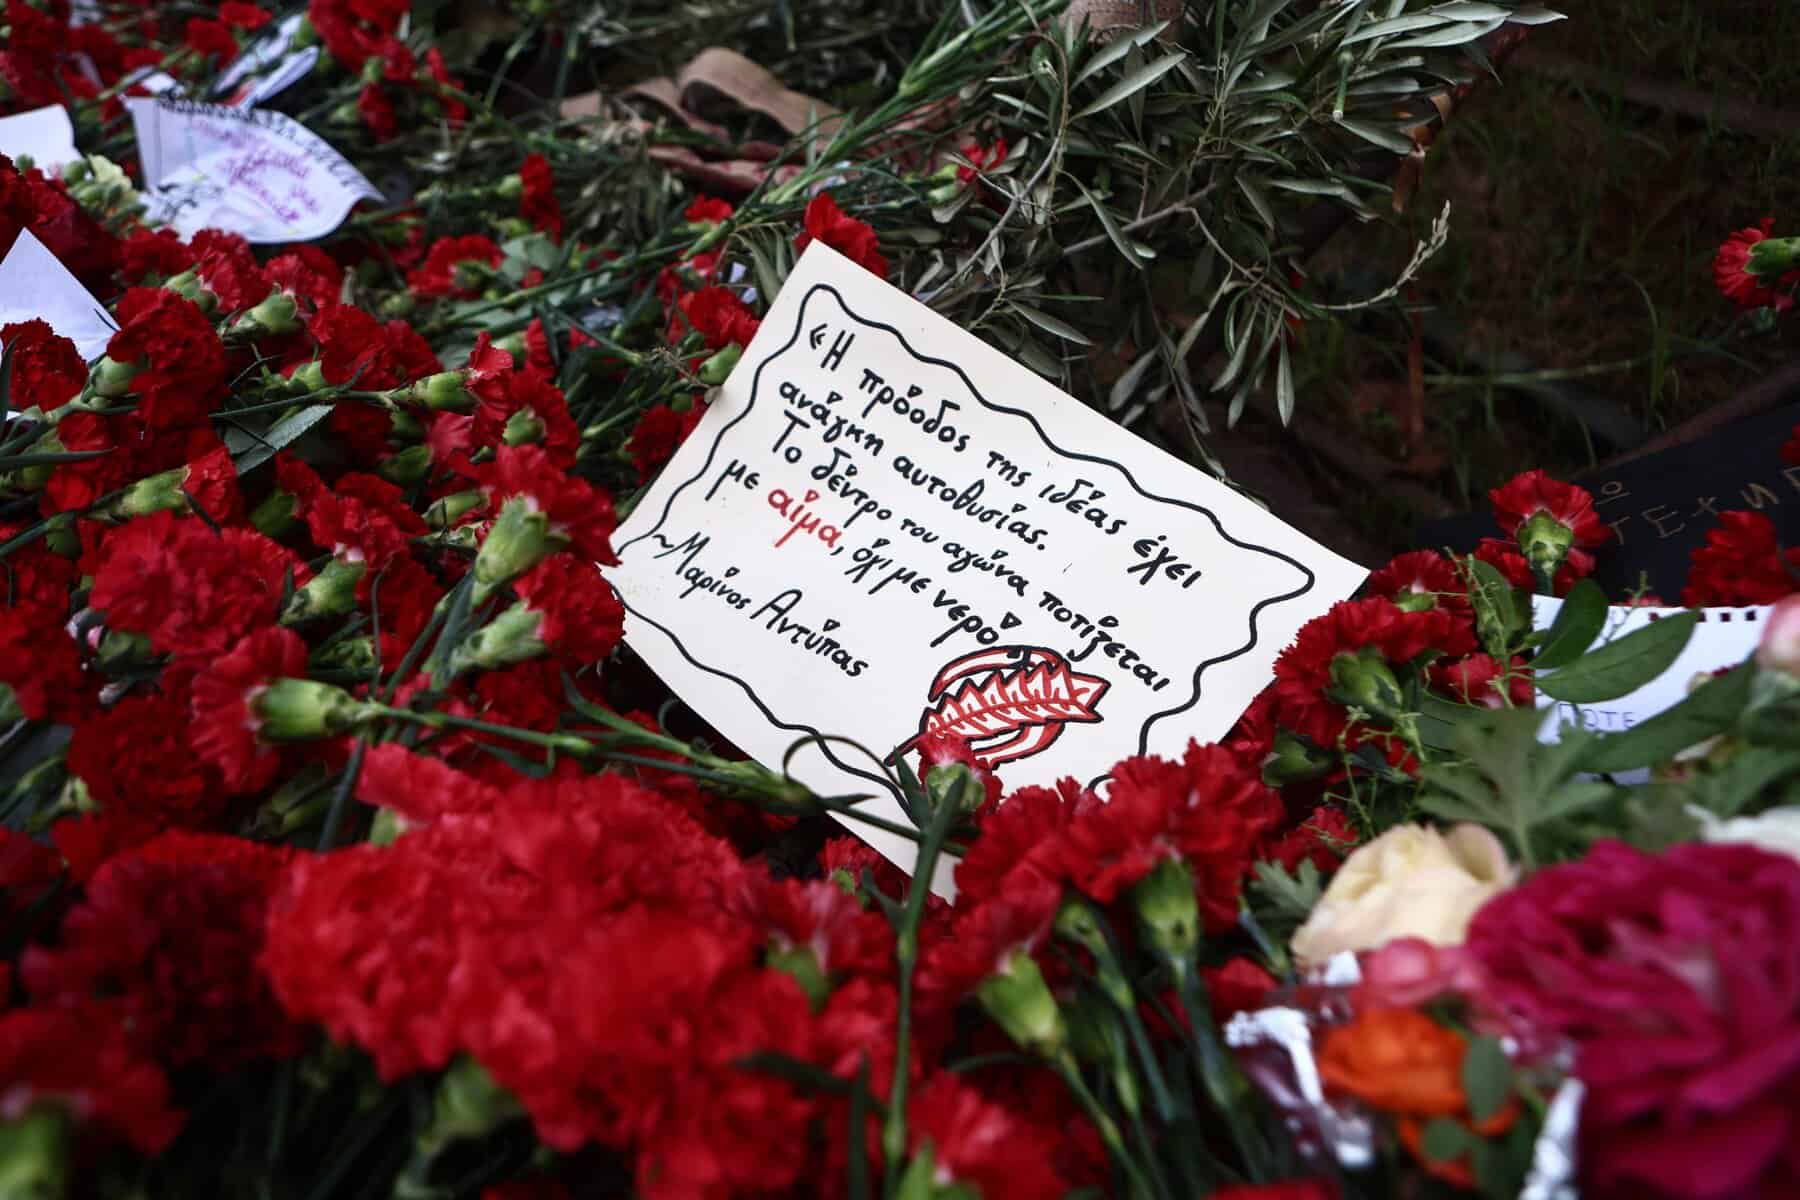 «Η πρόοδος της ιδέας έχει
ανάγκη αυτοθυσίας.
Το δέντρο του αγώνα ποτίζεται
με αίμα, όχι με νερό
~Μαρίνος Αντύπας
ΠΟΤΕ